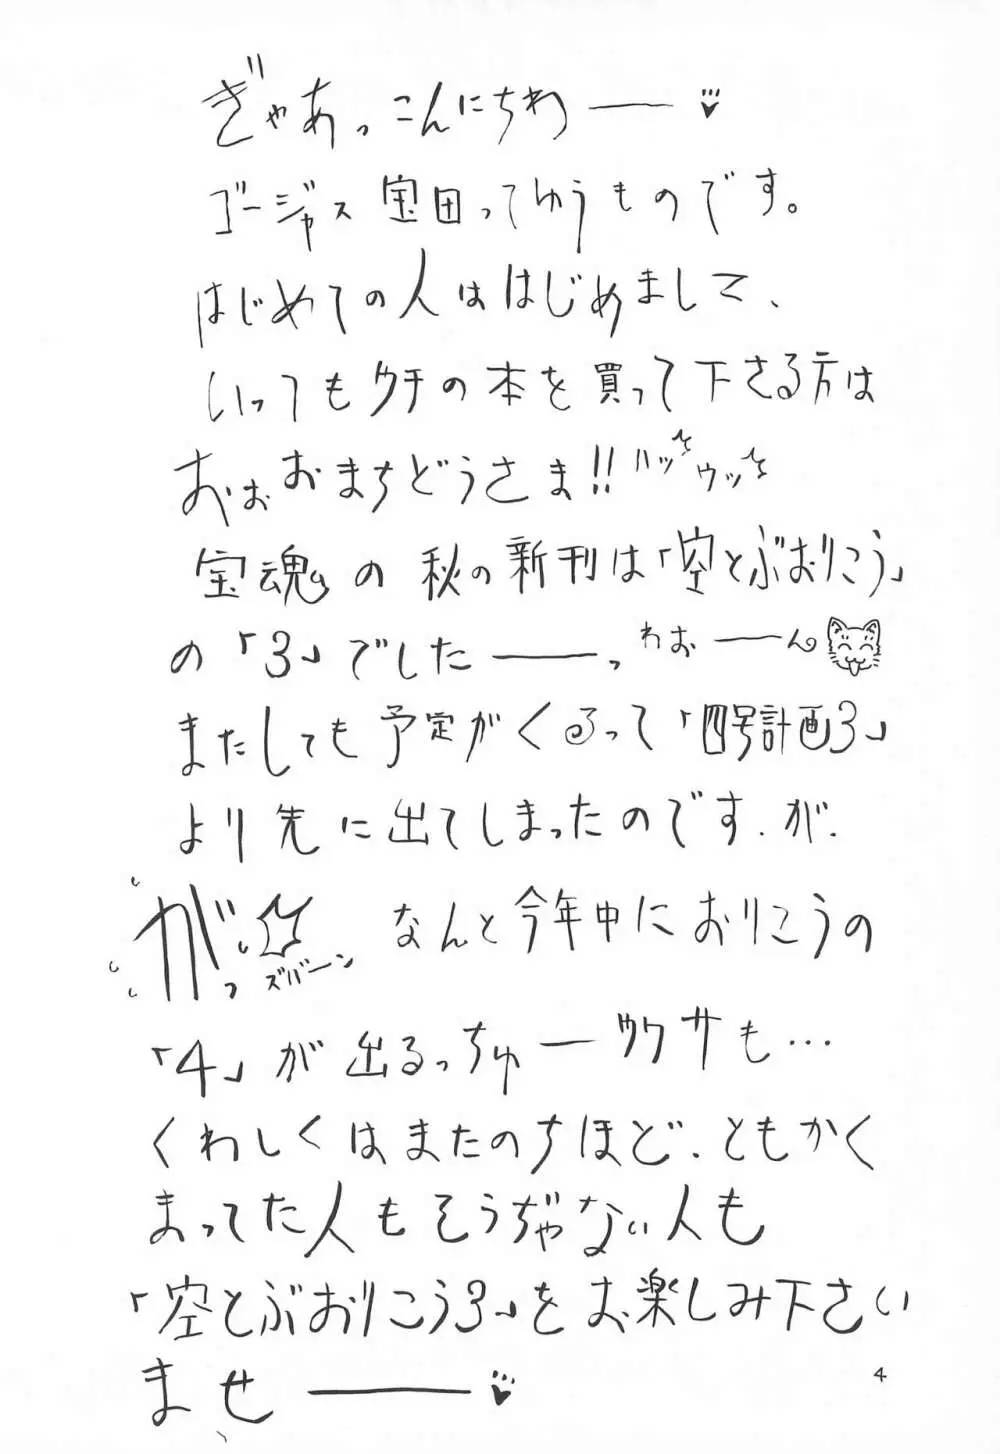 ぎゃあっこんにちわ――
ゴージャス宝田ってゆうものです。
はじめての人ははじめまして、
いってもウチの本を買って下さる方は
おぉおまちどうさま!!ハッウッ
宝魂の秋の新刊は「空とぶおりこう」
の「3」でした――っわおーん
またしても予定がくるって「四号計画3」
より先に出てしまったのです.が.
がっズバーン なんと今年中におりこうの
「4」が出るっちゅーウワサも…
くわしくはまたのちほど、ともかく
まってた人もそうぢゃない人も
「空とぶおりこう3」をお楽しみ下さい
ませ――
4